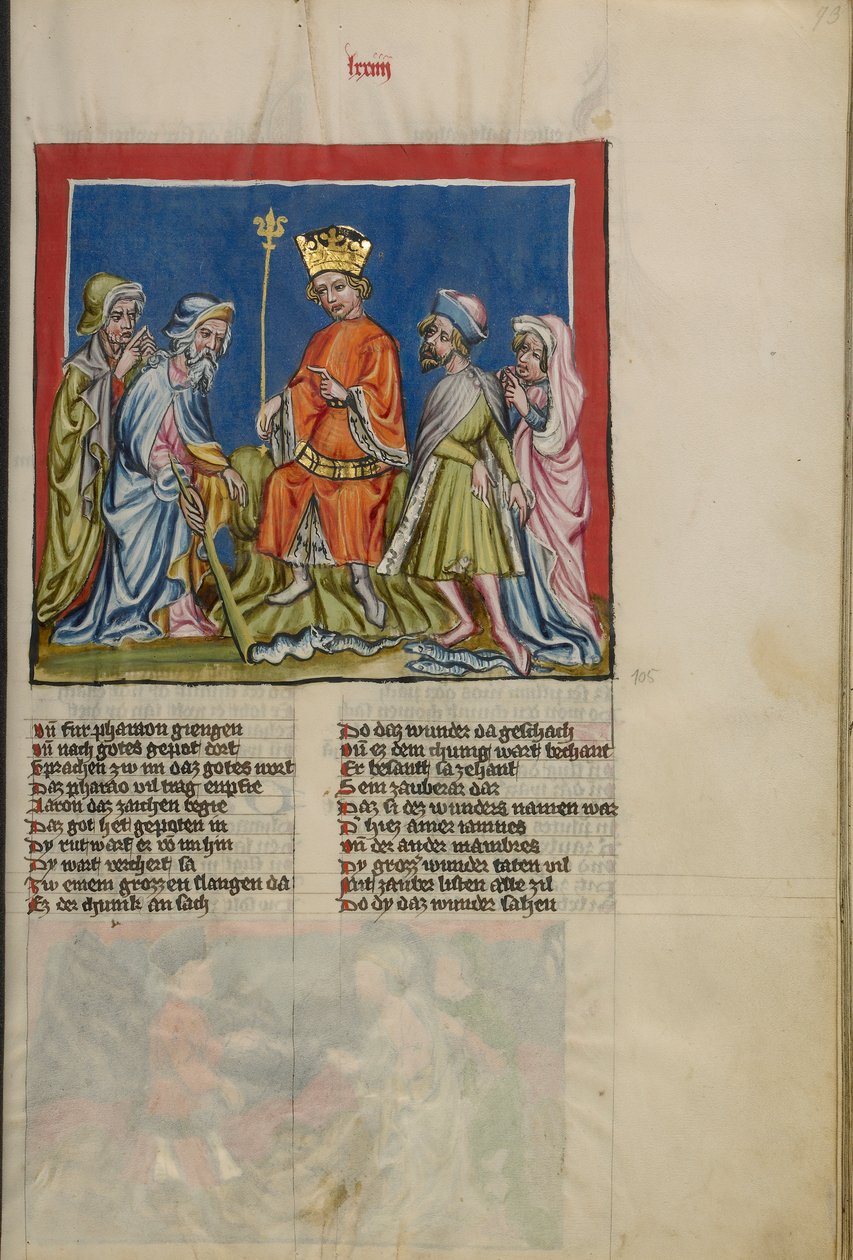 lxxiiij
93
105
Vn̄ fur pharaon giengen
Vn̄ nach gotes gepot dort
Sprachen zw im daz gotes wort
Daz pharao vil trag enpfie
Aaron daz zaichen begie
Daz got het gepoten in
Dy rut warf er vō im hin
Dy wart verchert sa
Zw einem grozzen slangen da
Ez der chunik an sach
Do daz wunder da geschach
Vn̄ ez dem chunig wart bechant
Er besant sa zehant
Sein zauberar dar
Daz si dez wunders namen war
D' hiez ainer iamnes
Vn̄ der ander mambres
Dy grozz' wunder taten vil
Mit zauber listen alle zil
Do dy daz wunder sahen